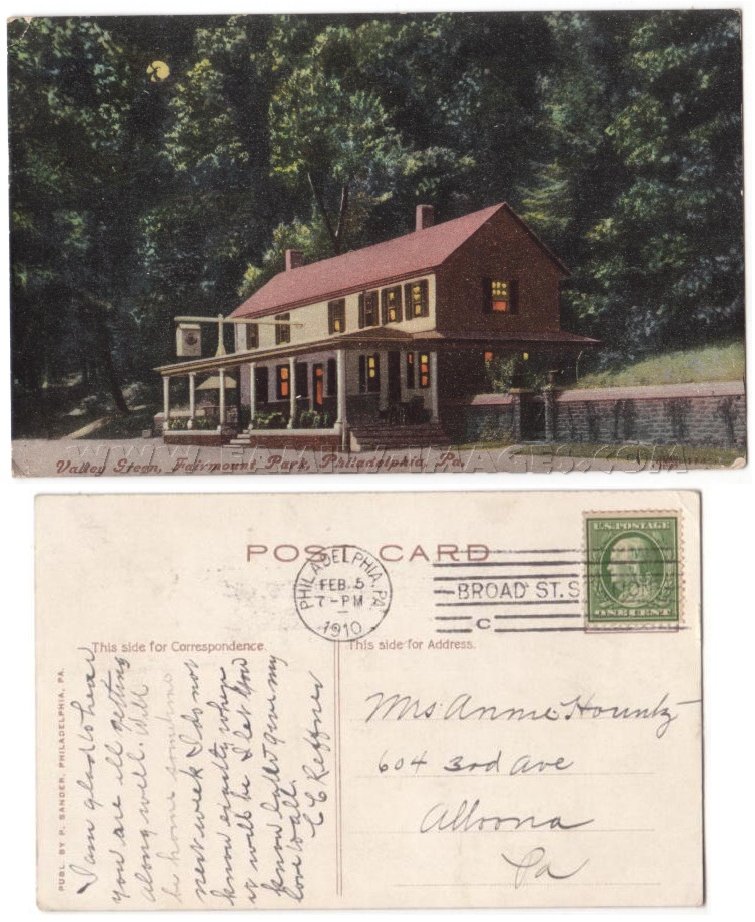 Valley Green, Fairmount Park, Philadelphia, Pa.
POST CARD
PHILADELPHIA, PA.
FEB 5
7-PM
1910
BROAD ST. S
C
U.S. POSTAGE
ONE CENT
This side for Correspondence.
This side for Address.
PUBL. BY P. SANDER, PHILADELPHIA, PA.
I am glad to hear
you are all getting
along well. Will
be home sometime
next week I do not
know exactly when
it will be I let you
know later give my
love to all.
C C Reffner
Mrs Annie Hountz
604 3rd Ave
Altoona
Pa